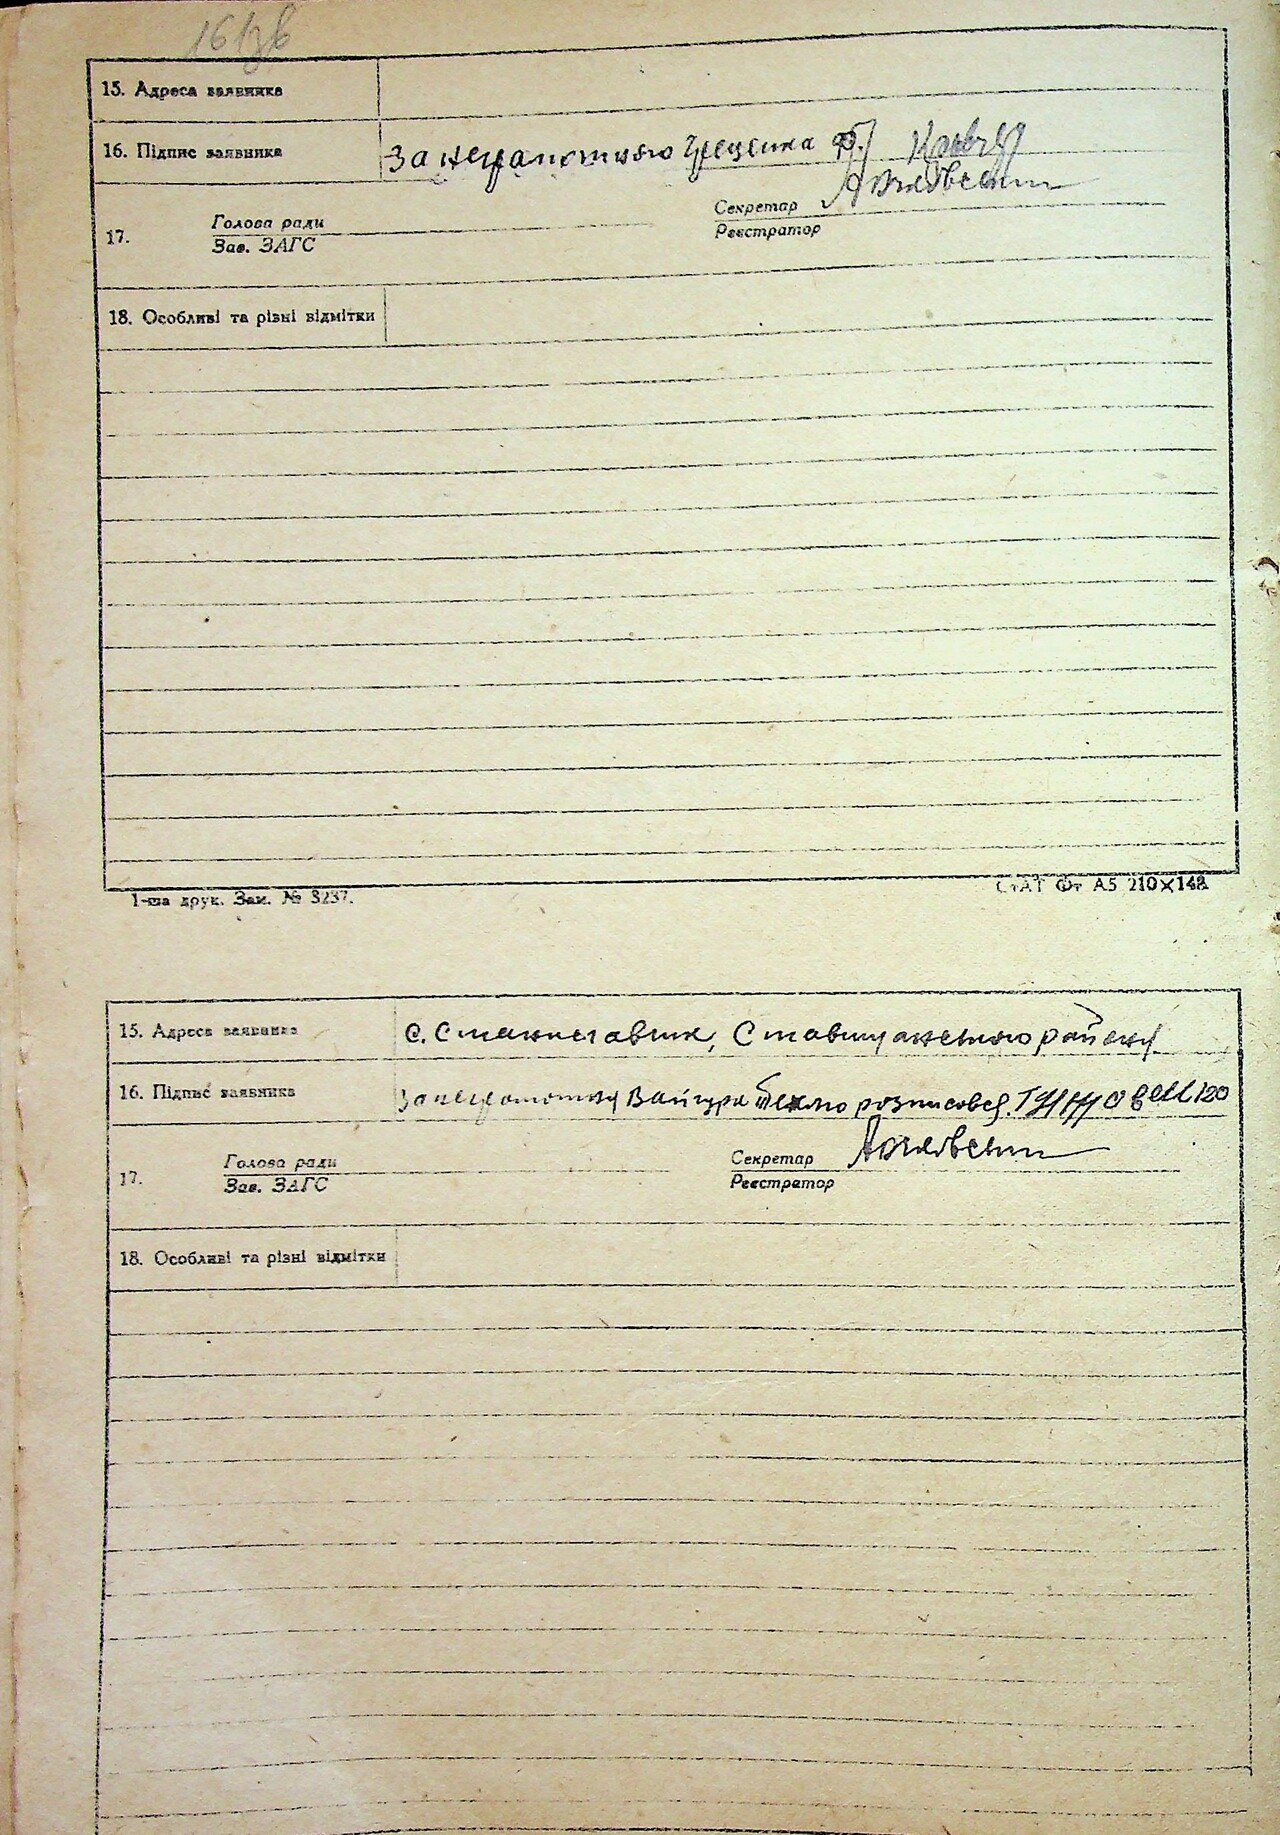 16 зв
15. Адреса заявника
16. Підпис заявника За неграмотного Грещенка Ф.
Секретар
Голова ради
17.
Зав. ЗАГС
Реєстратор
18. Особливі та різні відмітки
1-ша друк. Зам. № 3237.
СтАТ Фт А5 210×148
15. Адреса заявника с. Станиславчик, Ставищанського району
16. Підпис заявника За неграмотну розписовся.
Секретар
Голова ради
17.
Зав. ЗАГС
Реєстратор
18. Особливі та різні відмітки